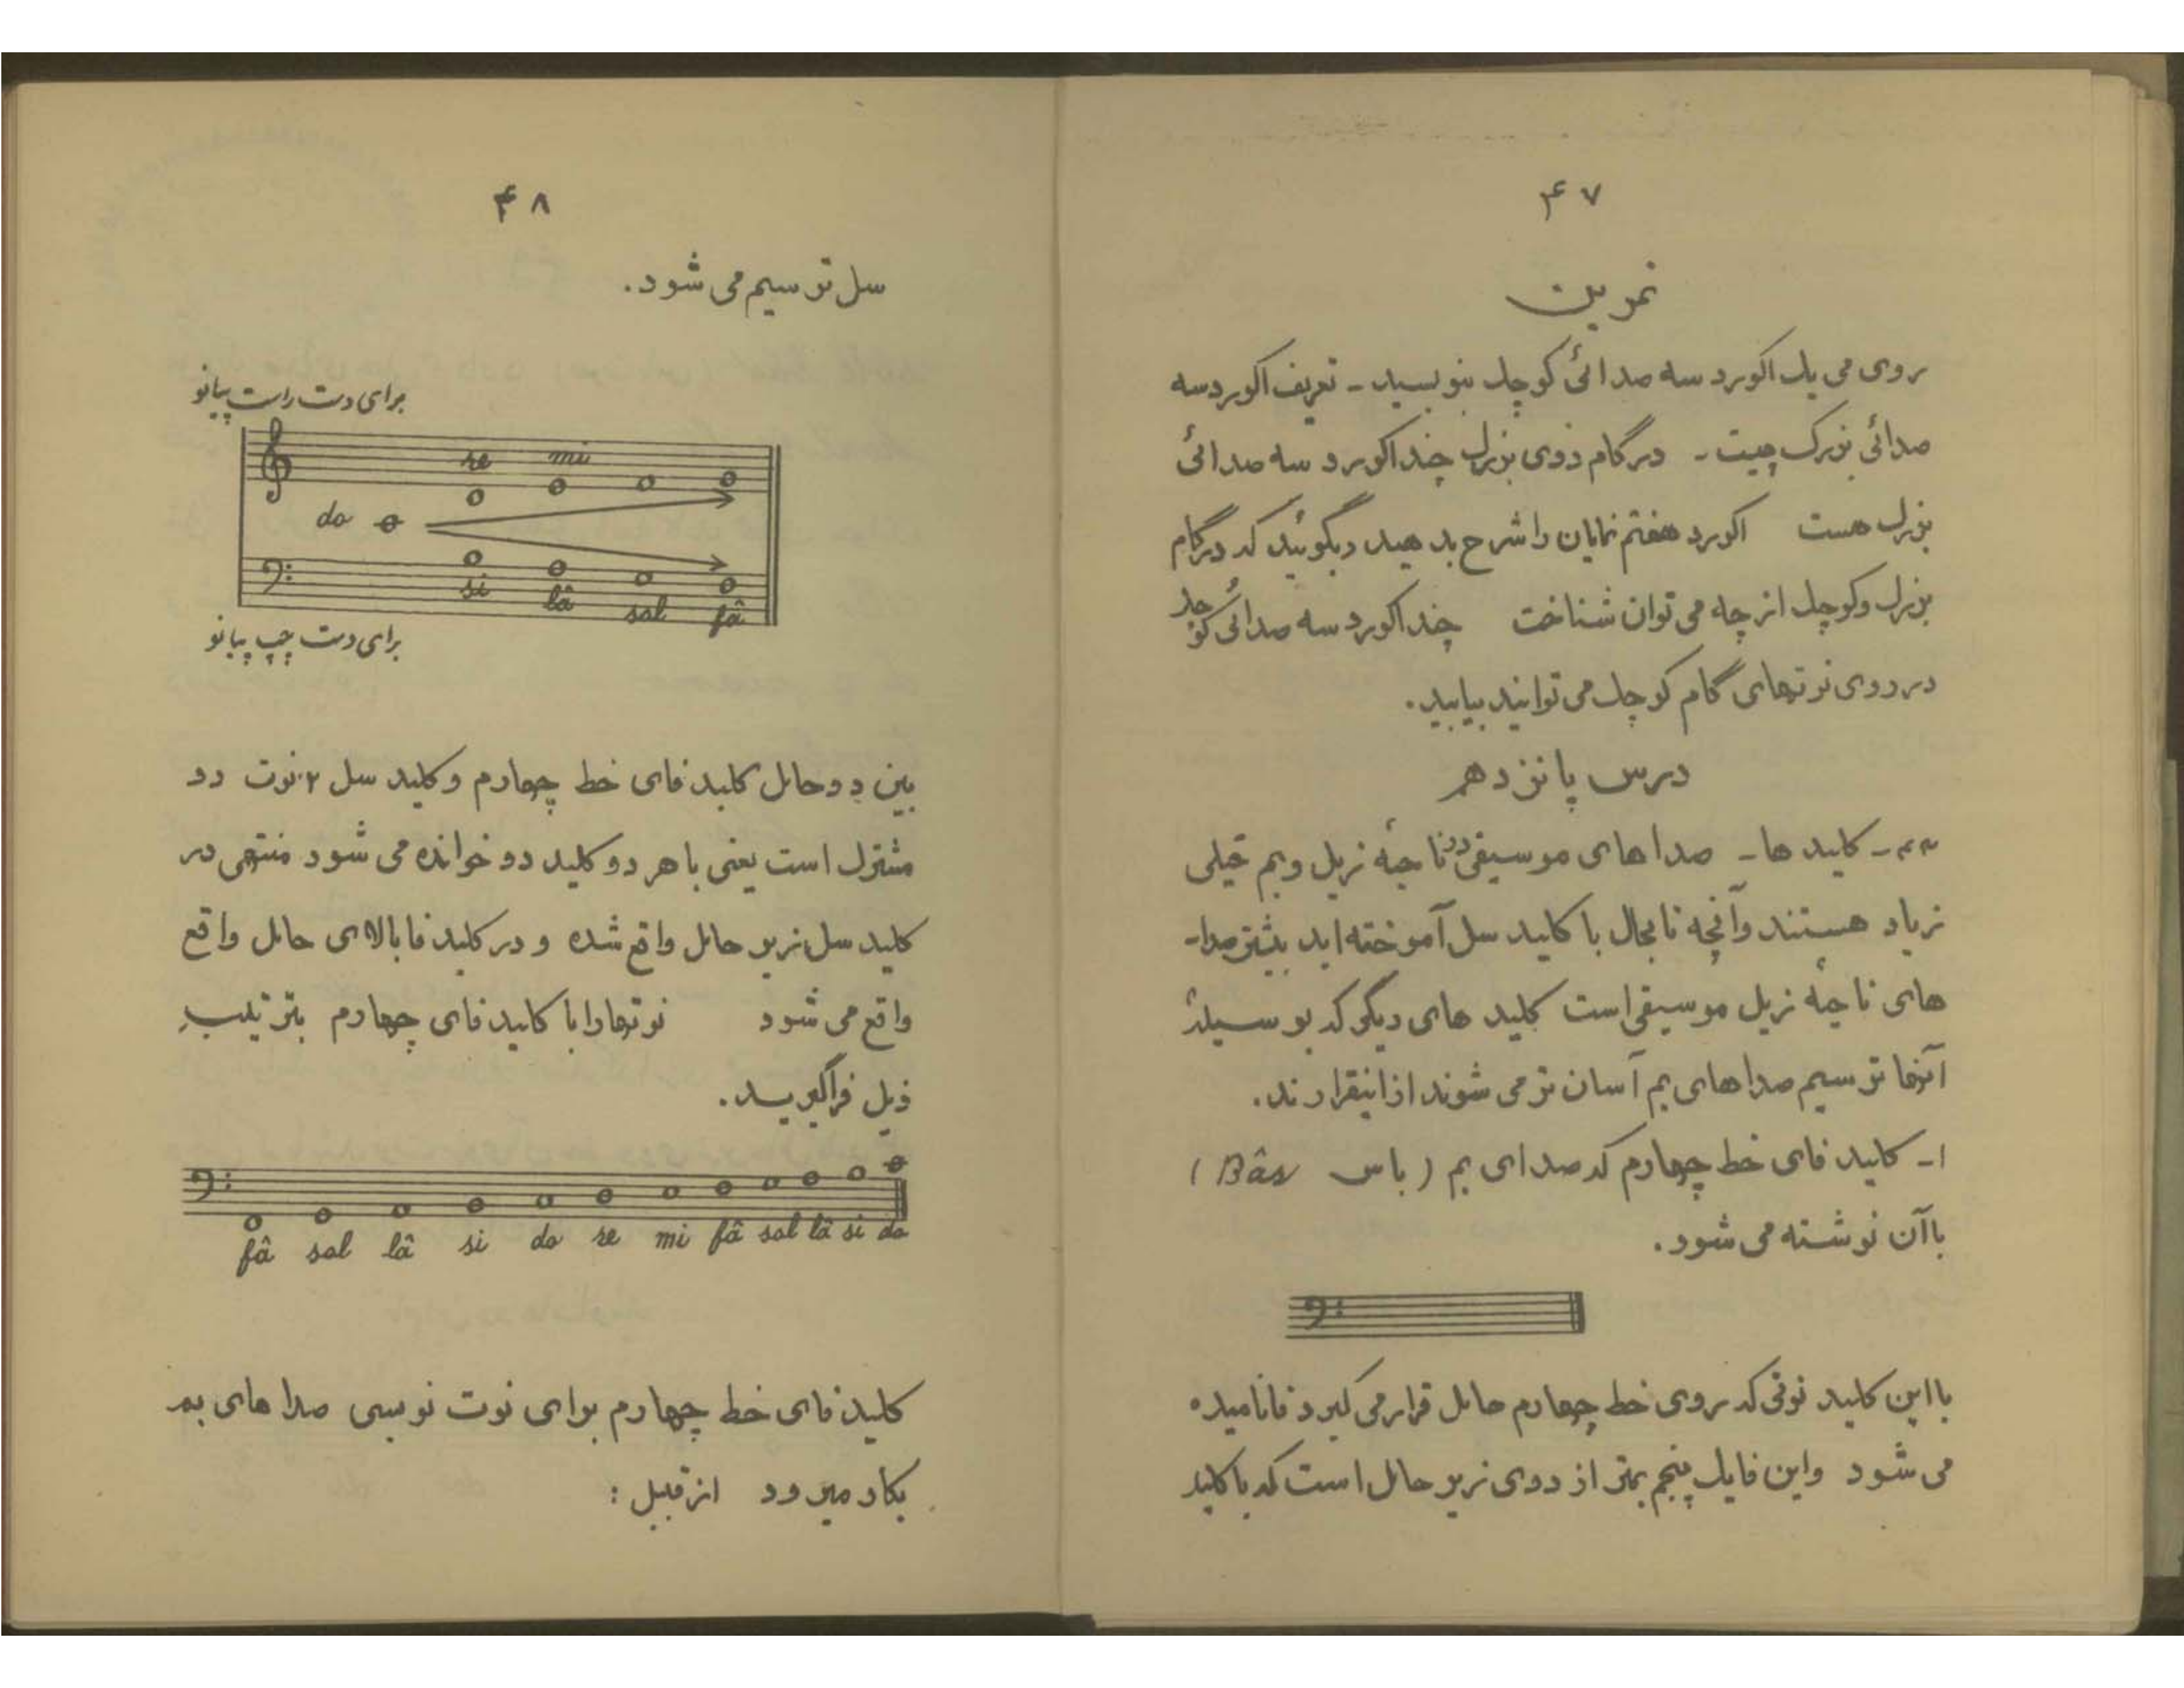 ۴۷
تمرین
روی می یک اکورد سه صدائی کوچک بنویسید - تعریف اکورد سه
صدائی بزرک چیست - درگام دوی بزرک چند اکورد سه صدائی
بزرک هست اکورد هفتم نمایان را شرح بدهید و بگوئید که درگام
بزرک وکوچک از چه می توان شناخت چند اکورد سه صدائی کوچک
در روی نوتهای گام کوچک می توانید بیابید.
درس پانزدهم
کلید ها - صداهای موسیقی در ناحیهٔ زیل وبم خیلی
زیاد هستند وآنچه تابحال با کلید سل آموخته اید بیشتر صدا-
های ناحیهٔ زیل موسیقی است کلید های دیگر که بوسیلهٔ
آنها ترسیم صداهای بم آسان تر می شوند از اینقرارند.
۱- کلید فای خط چهارم که صدای بم (باس Bâs)
باآن نوشته می شود.
بااین کلید نوتی که روی خط چهارم حامل قرار می گیرد فا نامیده
می شود واین فا یک پنجم بمتر از دوی زیر حامل است که با کلید
۴۸
سل ترسیم می شود.
برای دست راست پیانو
re mi
do
si lâ sol fâ
برای دست چپ پیانو
بین دو حامل کلید فای خط چهارم وکلید سل ۲ نوت دو
مشترک است یعنی با هر دو کلید دو خوانده می شود منتهی در
کلید سل زیر حامل واقع شده و در کلید فا بالای حامل واقع
واقع می شود نوتها را با کلید فای چهارم بترتیب
ذیل فراگیرید.
fâ sol lâ si do re mi fâ sol lâ si do
کلید فای خط چهارم برای نوت نویسی صدا های بم
بکار میرود از قبیل :